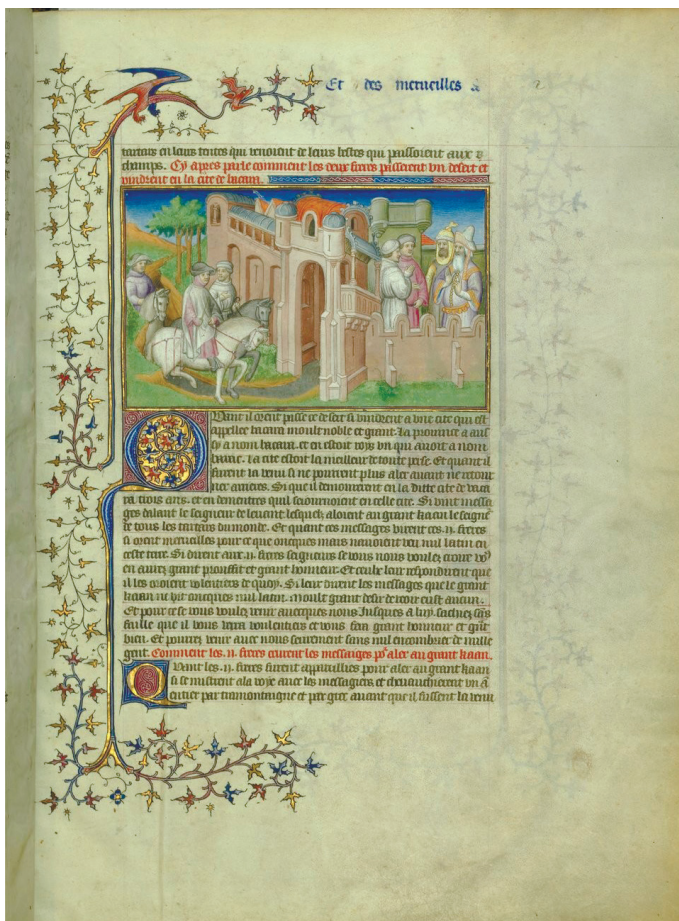 Et des merueilles
tartars en leurs tentes qui venoient de leurs bestes qui paissoient aux
champs. Cy apres parle comment les deux freres passerent vn desert et
vindrent en la cite de bacara.
Quant il orent passe ce desert si vindrent a vne cite qui est
appellee bacara moult noble et grant. La prouince a aussi
a nom bacara. et en estoit roys vn qui auoit a nom
barac. La cite estoit la meilleur de toute perse. Et quant il
furent la venu si ne porent plus aler auant ne retour
ner arrieres. Si que il demourerent en la ditte cite de baca
ra trois ans. et en dementres quil seiournoient en celle cite. Si vint messa
ges dalau le seigneur de leuant lesquelz aloient au grant kaan le seigneur
de tous les tartars du monde. Et quant ces messages virent ces .ii. freres
si orent merueilles pour ce que oncques mais nauoient veu nul latin en
celle terre. Si dirent aux .ii. freres seigneurs se vous nous voulez croire vous
en aurez grant proufit et grant honneur. Et ceulz leur respondirent que
il les croient volentiers de quoy. Si leur dirent les messages que le grant
kaan ne vit oncques nul latin. Moult grant desir de veoir en a aucun.
Et pour ce se vous voulez venir auecques nous Jusques a luy. sachiez sans
faille que il vous verra voulentiers et vous fera grant honneur et grant
bien. Et pourrez venir auec nous seurement sans nul encombrier de nulle
gent. Comment les .ii. freres crurent les messaiges pour aler au grant kaan.
Quant les .ii. freres furent appareilliez pour aler au grant kaan
si se mistrent a la voye auec les messagiers et cheuauchierent vn an
entier par tramontaigne et par grec auant que il fussent la venu